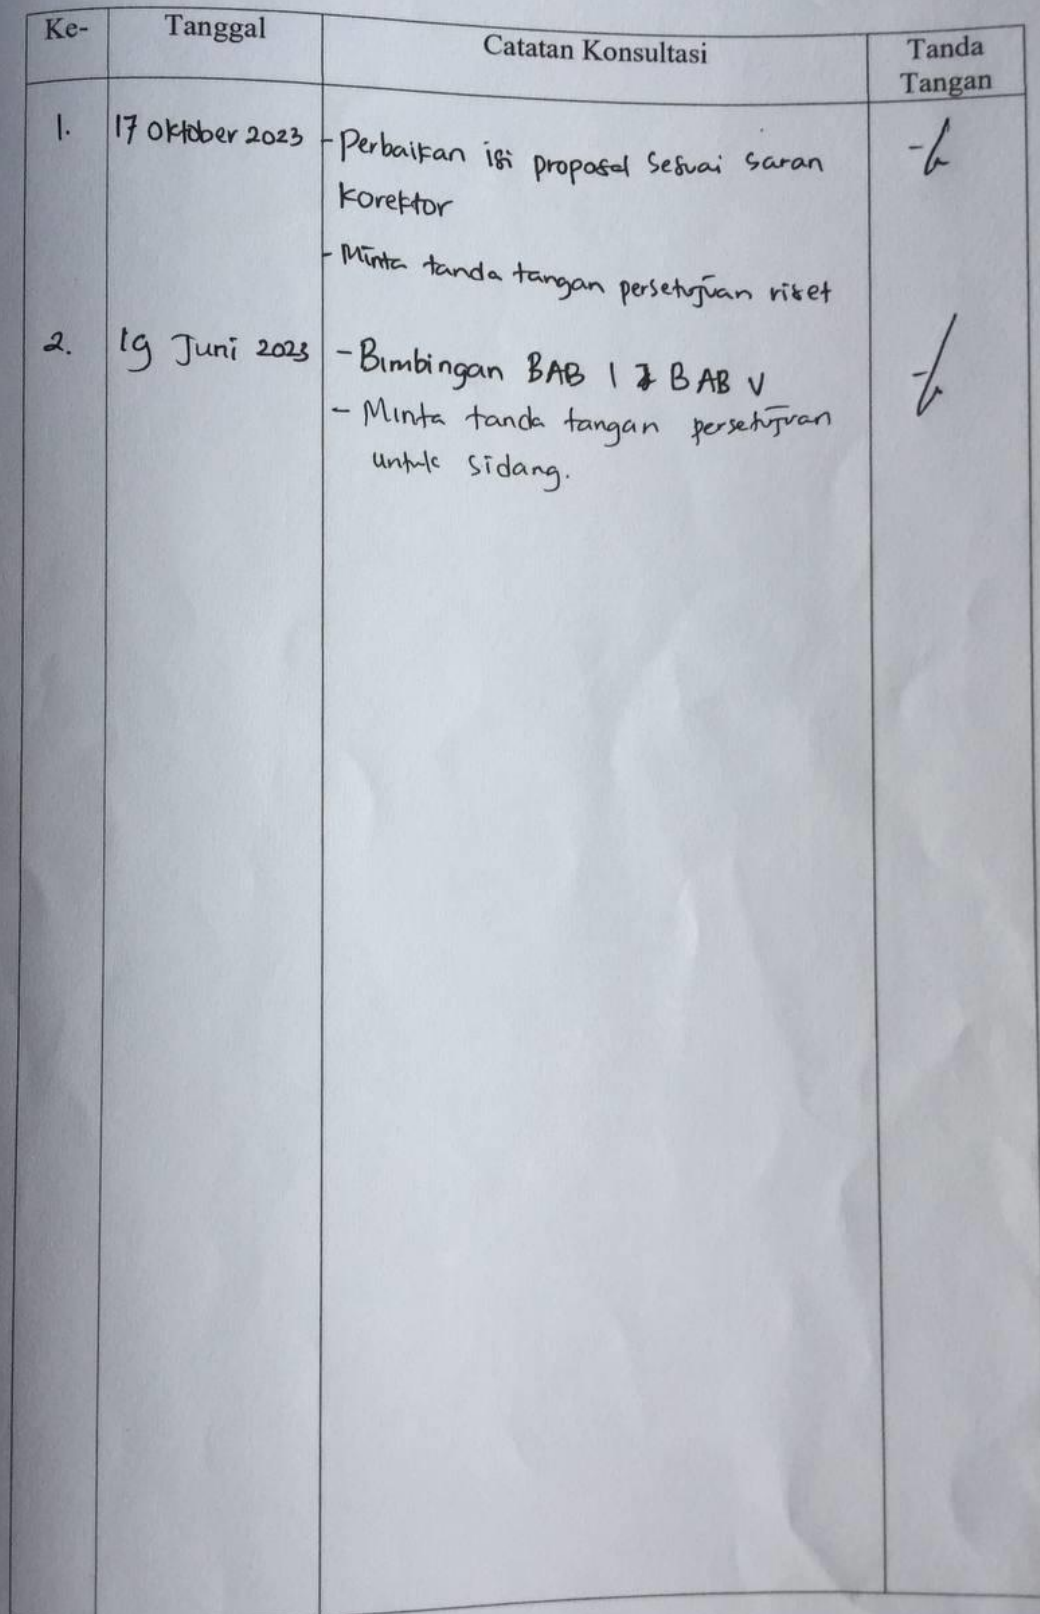 Ke- Tanggal Catatan Konsultasi Tanda Tangan
1. 17 Oktober 2023 - Perbaikan isi proposal Sesuai saran
korektor
- Minta tanda tangan persetujuan riset
2. 19 Juni 2023 - Bimbingan BAB I BAB V
- Minta tanda tangan persetujuan
untuk sidang.